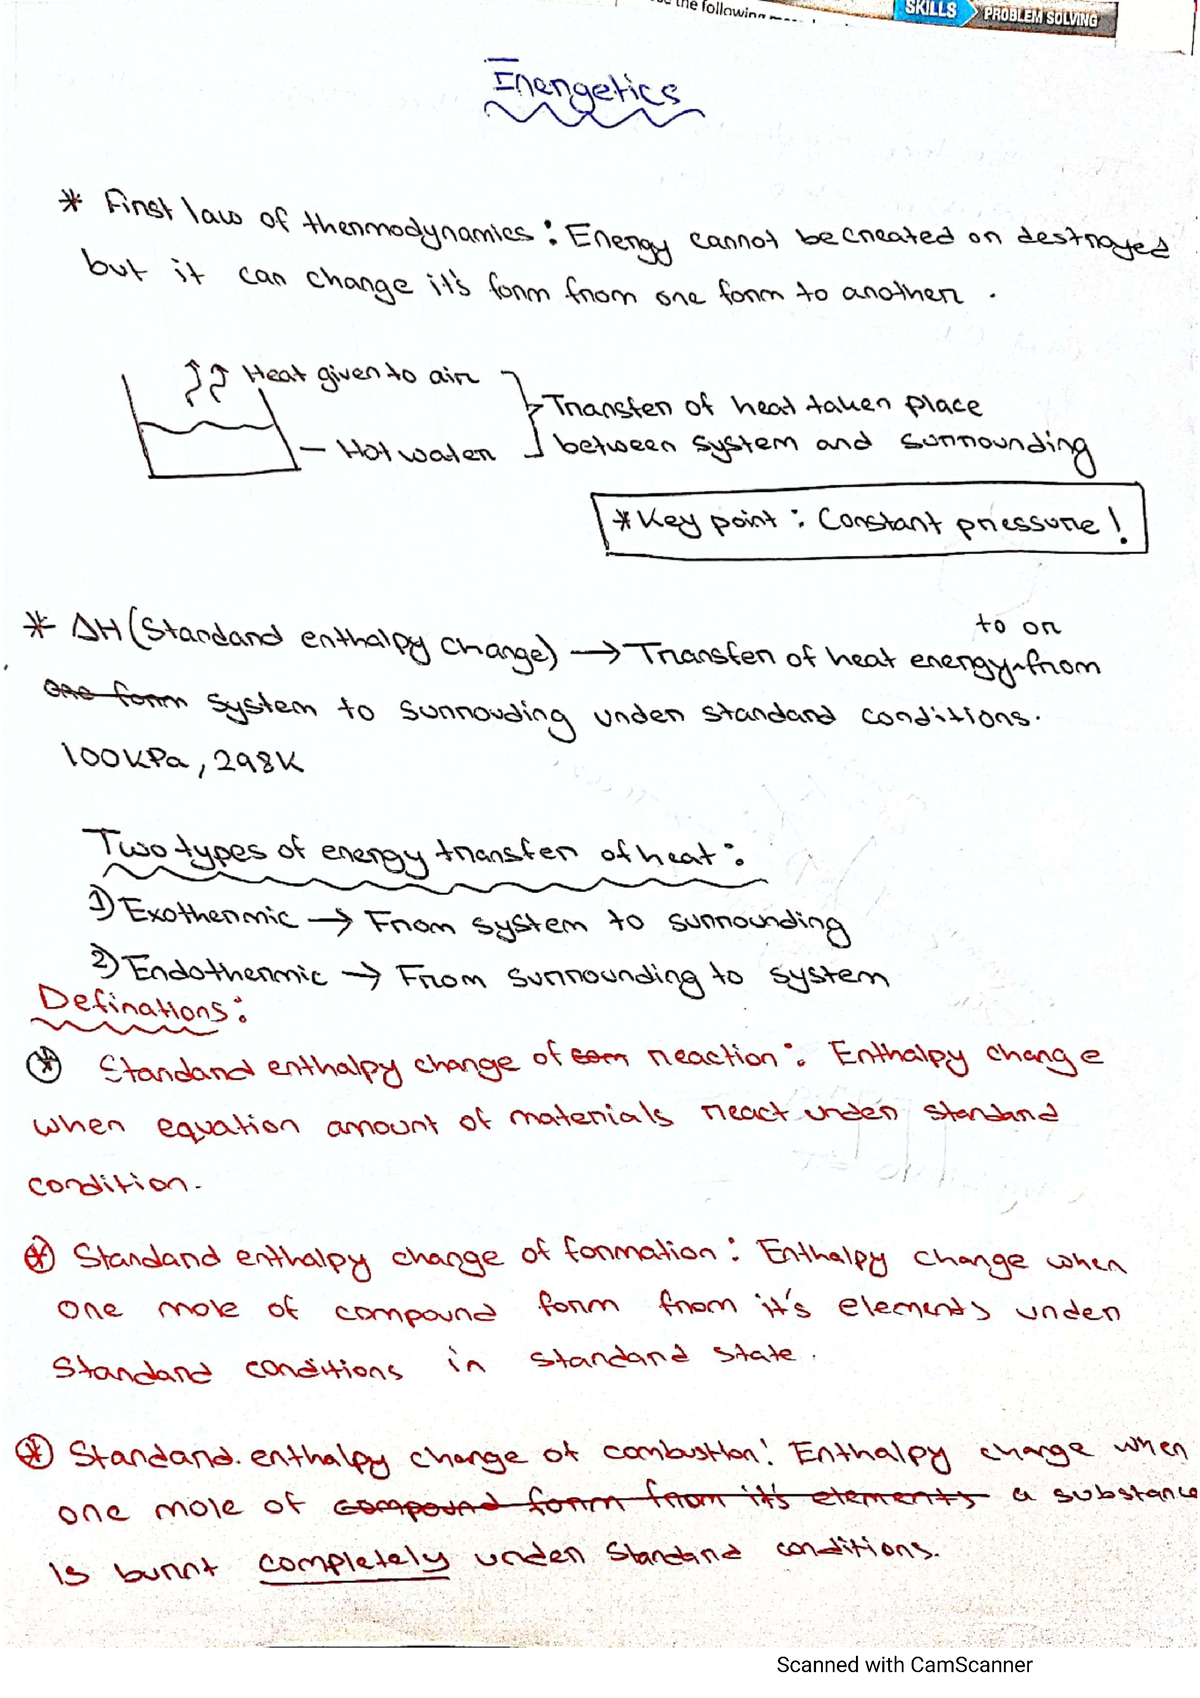 the following
SKILLS PROBLEM SOLVING
Energetics
* First law of thermodynamics : Energy cannot be created or destroyed
but it can change it's form from one form to another .
Heat given to air
Transfer of heat taken place
Hot water
between system and surrounding
* Key point : Constant pressure !
to or
* ΔH (Standard enthalpy change) → Transfer of heat energy from
one form system to surrouding under standard conditions.
100 kPa , 298K
Two types of energy transfer of heat :
1) Exothermic → From system to surrounding
2) Endothermic → From surrounding to system
Definations :
* Standard enthalpy change of com reaction : Enthalpy change
when equation amount of materials react under standard
condition.
* Standard enthalpy change of formation : Enthalpy change when
one mole of compound form from it's elements under
standard conditions in standard state .
* Standard. enthalpy change of combustion : Enthalpy change when
one mole of compound form from it's elements a substance
is burnt completely under standard conditions.
Scanned with CamScanner